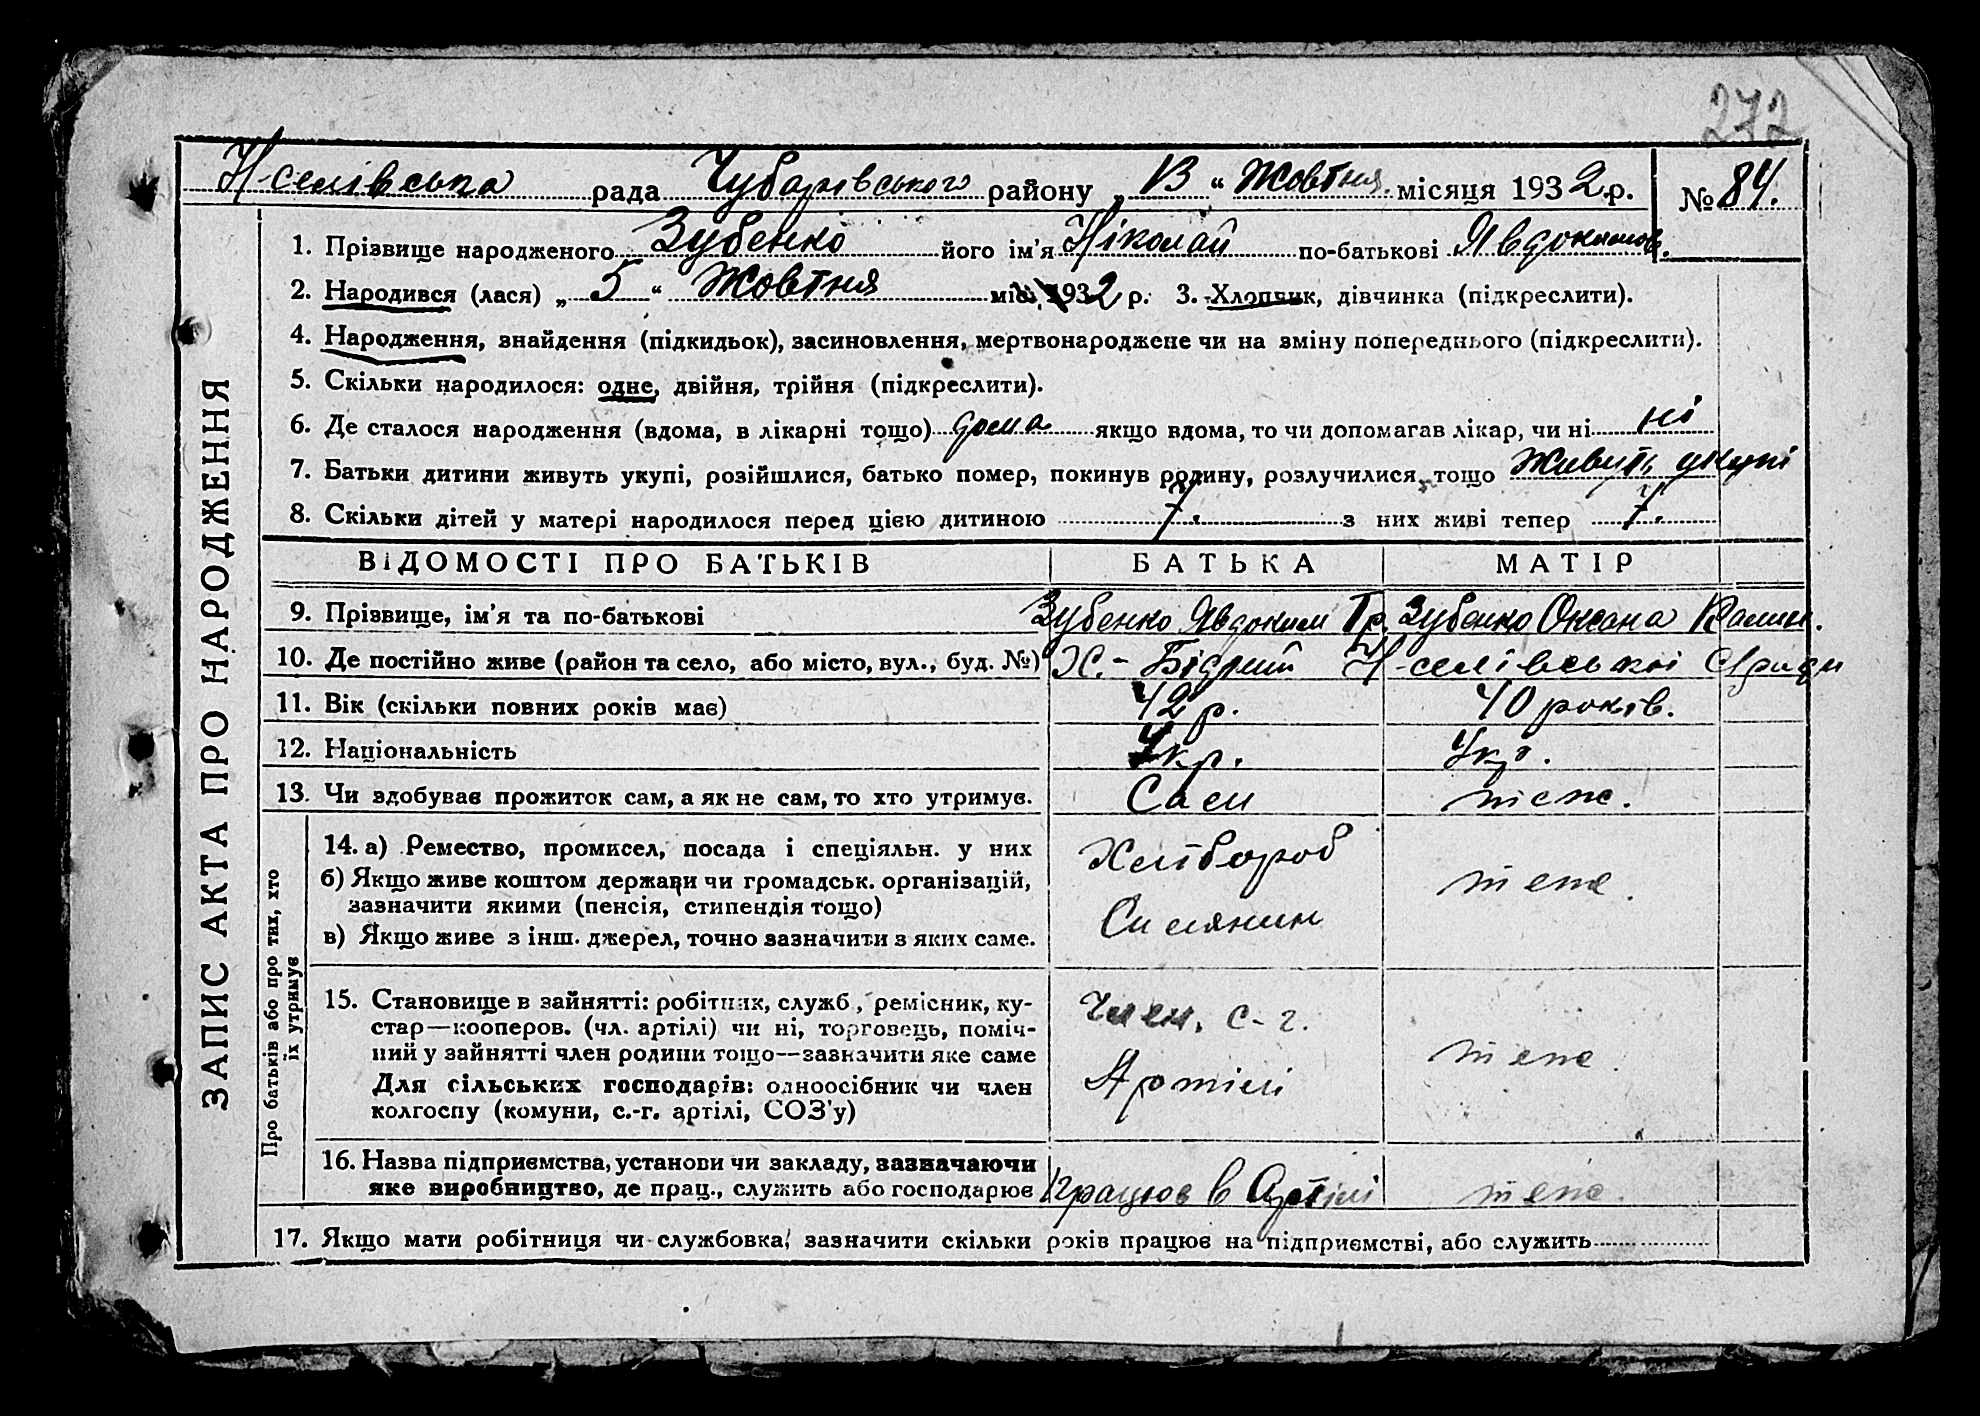 272
Н-селівська рада Чубарівського району „ 13 “ Жовтня місяця 1932 р. № 84.
1. Прізвище народженого Зубенко його ім'я Ніколай по-батькові Явдокимов.
2. Народився (лася) „ 5 “ Жовтня міс. 1932 р. 3. Хлопчик, дівчинка (підкреслити).
4. Народження, знайдення (підкидьок), засиновлення, мертвонароджене чи на зміну попереднього (підкреслити).
5. Скільки народилося: одне, двійня, трійня (підкреслити).
6. Де сталося народження (вдома, в лікарні тощо) дома якщо вдома, то чи допомагав лікар, чи ні ні
7. Батьки дитини живуть укупі, розійшлися, батько помер, покинув родину, розлучилися, тощо Живуть укупі
8. Скільки дітей у матері народилося перед цією дитиною 7. з них живі тепер 7.
ВІДОМОСТІ ПРО БАТЬКІВ БАТЬКА МАТІР
9. Прізвище, ім'я та по-батькові Зубенко Явдоким Гр. Зубенко Оксана
10. Де постійно живе (район та село, або місто, вул., буд. №) Х.- Бідний Н-селівської С/ради
11. Вік (скільки повних років має) 42 р. 40 років.
12. Національність Укр. Укр.
13. Чи здобуває прожиток сам, а як не сам, то хто утримує. Сам теж.
14. а) Ремество, промисел, посада і спеціяльн. у них Хлібороб теж.
б) Якщо живе коштом держави чи громадськ. організацій,
зазначити якими (пенсія, стипендія тощо) Силянин
в) Якщо живе з інш. джерел, точно зазначити з яких саме.
15. Становище в зайнятті: робітник, служб., ремісник, ку- Член. с-г.
стар—кооперов. (чл. артілі) чи ні, торговець, поміч-
ний у зайнятті член родини тощо—зазначити яке саме теж.
Для сільських господарів: одноосібник чи член Артілі
колгоспу (комуни, с.-г. артілі, СОЗ'у)
16. Назва підприємства, установи чи закладу, зазначаючи
яке виробництво, де прац., служить або господарює Працює в Артілі теж.
17. Якщо мати робітниця чи службовка, зазначити скільки років працює на підприємстві, або служить
ЗАПИС АКТА ПРО НАРОДЖЕННЯ
Про батьків або про тих, хто
їх утримує